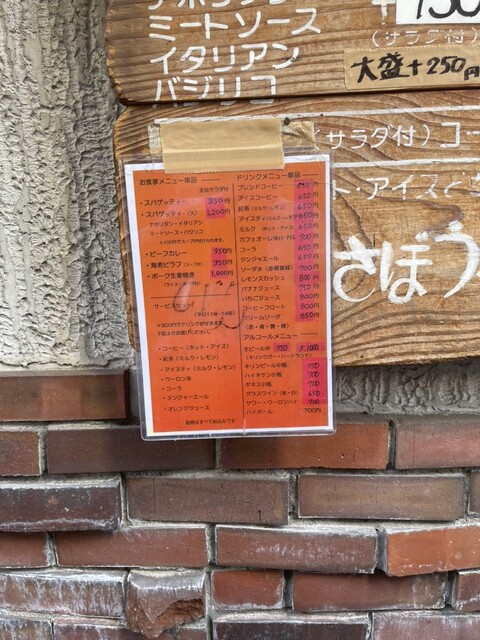 ナポリタン
ミートソース
イタリアン
バジリコ
(サラダ付)
大盛+250円
(サラダ付)コー
さぼう
お食事メニュー単品
全品サラダ付
・スパゲッティー 950円
・スパゲッティー(大) 1,200円
ナポリタン・イタリアン
ミートソース・バジリコ
・ビーフカレー 950円
・海老ピラフ(スープ付) 950円
・ポーク生姜焼き 1,000円
サービスセット
(平日11時~14時)
・コーヒー(ホット・アイス)
・紅茶(ミルク・レモン)
・アイスティ(ミルク・レモン)
・ウーロン茶
・コーラ
・ジンジャーエール
・オレンジジュース
価格はすべて税込みです
ドリンクメニュー単品
ブレンドコーヒー 650円
アイスコーヒー 650円
紅茶(ミルク・レモン) 650円
アイスティ(ミルク・レモン) 650円
ミルク(ホット・アイス) 650円
カフェオーレ 700円
コーラ 650円
ジンジャエール 650円
ソーダ水 700円
レモンスカッシュ 800円
バナナジュース 750円
いちごジュース 800円
コーヒーフロート 800円
クリームソーダ 850円
(赤・青・黄・緑)
アルコールメニュー
生ビール中 750 大1000
(キリンラガー・ハートランド)
キリンビール中瓶 750
ハイネケン小瓶 700
ギネス小瓶 700
グラスワイン(赤・白) 650
サワー・ウーロンハイ 700
ハイボール 700円